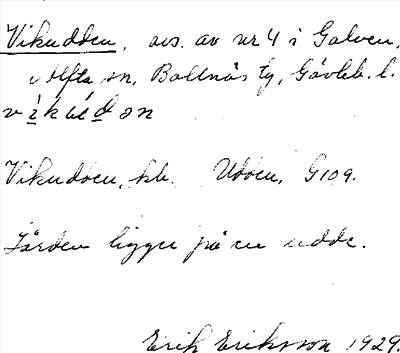 Vikudden, avs. av nr 4 i Galven,
i Alfta sn, Bollnäs tg, Gävleb. l.
Vikudden, kb. Udden, G109.
Gården ligger på en udde.
Erik Eriksson 1929.